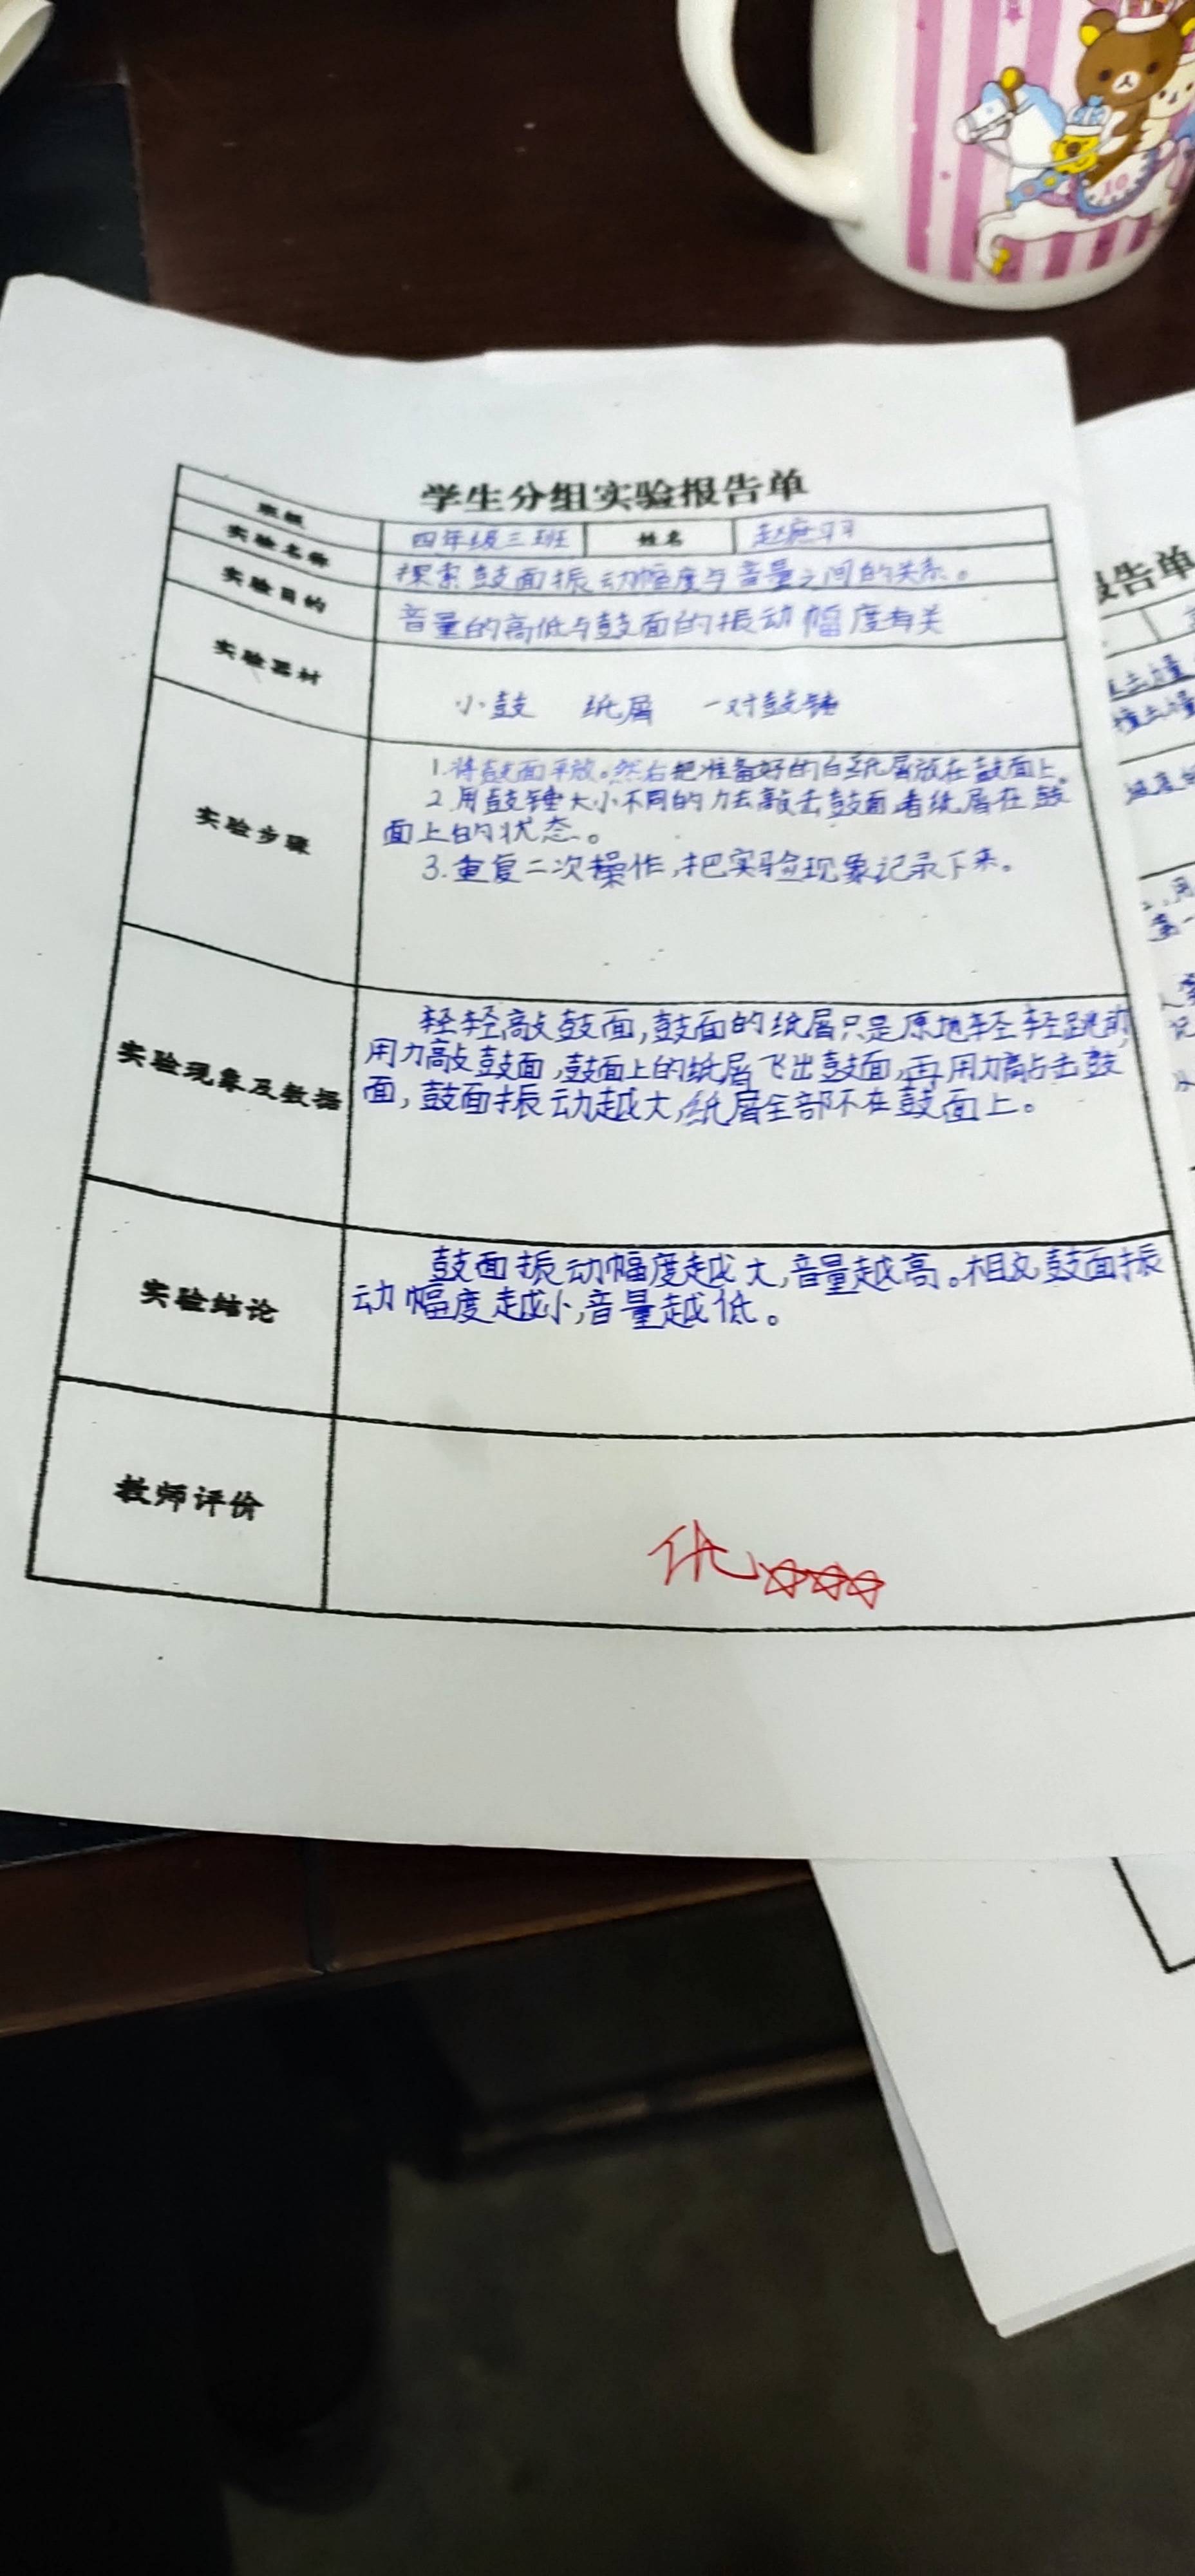 学生分组实验报告单
班级 四年级三班 姓名
实验名称 探索鼓面振动幅度与音量之间的关系。
实验目的 音量的高低与鼓面的振动幅度有关
实验器材 小鼓 纸屑 一对鼓锤
实验步骤
1.将鼓面平放。然后把准备好的白纸屑放在鼓面上。
2.用鼓锤大小不同的力去敲击鼓面看纸屑在鼓
面上的状态。
3.重复二次操作,把实验现象记录下来。
实验现象及数据
轻轻敲鼓面,鼓面的纸屑只是原地轻轻跳动,
用力敲鼓面,鼓面上的纸屑飞出鼓面,再用力敲击鼓
面,鼓面振动越大,纸屑全部不在鼓面上。
实验结论
鼓面振动幅度越大,音量越高。相反,鼓面振
动幅度越小,音量越低。
教师评价
优
报告单
10